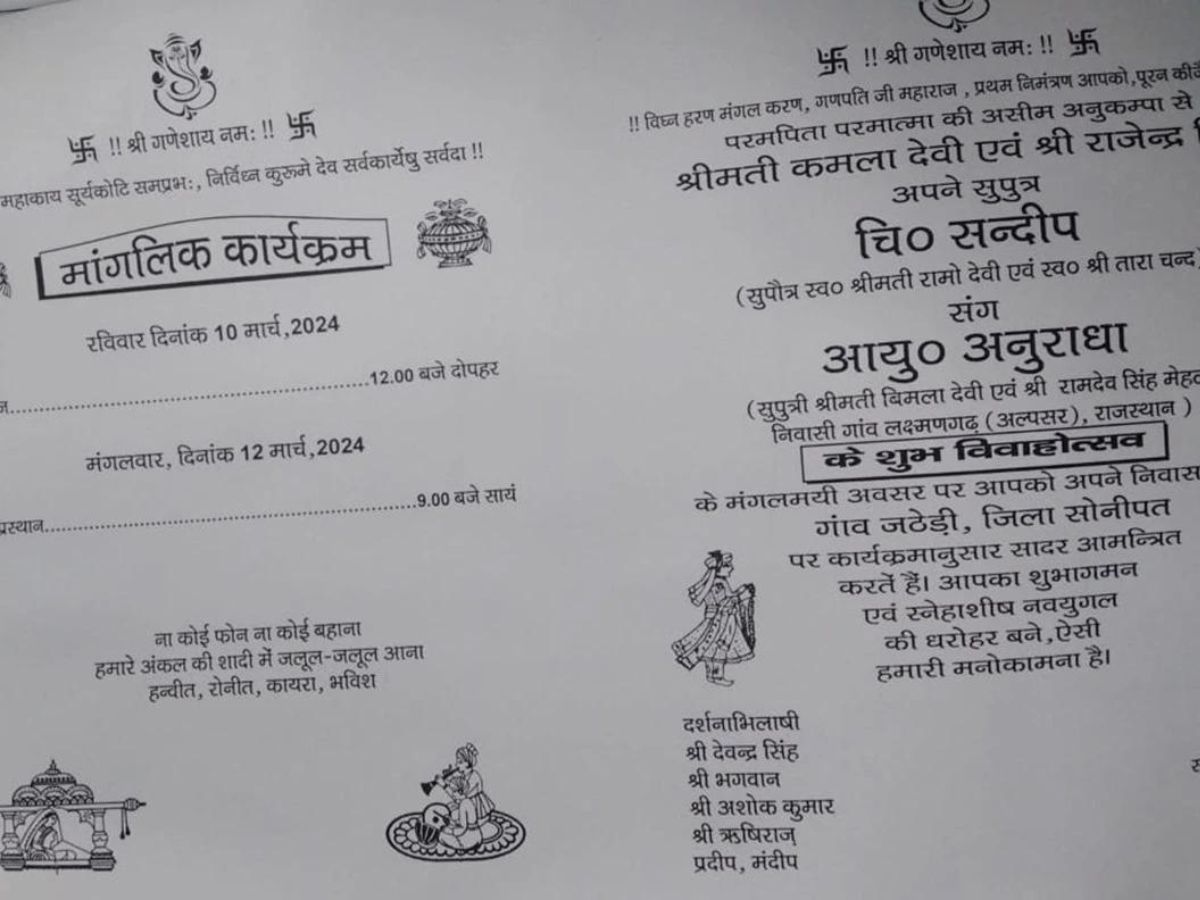 !! श्री गणेशाय नमः !!
महाकाय सूर्यकोटि समप्रभः, निर्विध्न कुरूमे देव सर्वकार्येषु सर्वदा !!
मांगलिक कार्यक्रम
रविवार दिनांक 10 मार्च,2024
...........................................12.00 बजे दोपहर
मंगलवार, दिनांक 12 मार्च,2024
प्रस्थान...........................................9.00 बजे सायं
ना कोई फोन ना कोई बहाना
हमारे अंकल की शादी में जलूल-जलूल आना
हन्वीत, रोनीत, कायरा, भविश
!! श्री गणेशाय नमः !!
!! विघ्न हरण मंगल करण, गणपति जी महाराज , प्रथम निमंत्रण आपको,पूरन
परमपिता परमात्मा की असीम अनुकम्पा से
श्रीमती कमला देवी एवं श्री राजेन्द्र
अपने सुपुत्र
चि० सन्दीप
(सुपौत्र स्व० श्रीमती रामो देवी एवं स्व० श्री तारा चन्द)
संग
आयु० अनुराधा
(सुपुत्री श्रीमती बिमला देवी एवं श्री रामदेव सिंह
निवासी गांव लक्ष्मणगढ़ (अल्पसर), राजस्थान )
के शुभ विवाहोत्सव
के मंगलमयी अवसर पर आपको अपने निवास
गांव जठेड़ी, जिला सोनीपत
पर कार्यक्रमानुसार सादर आमन्त्रित
करतें हैं। आपका शुभागमन
एवं स्नेहाशीष नवयुगल
की धरोहर बने,ऐसी
हमारी मनोकामना है।
दर्शनाभिलाषी
श्री देवन्द्र सिंह
श्री भगवान
श्री अशोक कुमार
श्री ऋषिराज्
प्रदीप, मंदीप